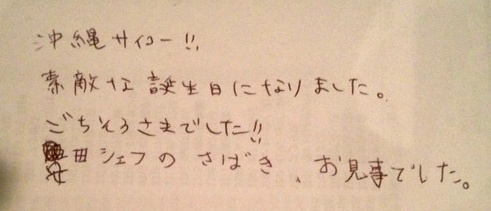 沖縄サイコー!!
素敵な誕生日になりました。
ごちそうさまでした!!
田シェフのさばき、お見事でした。